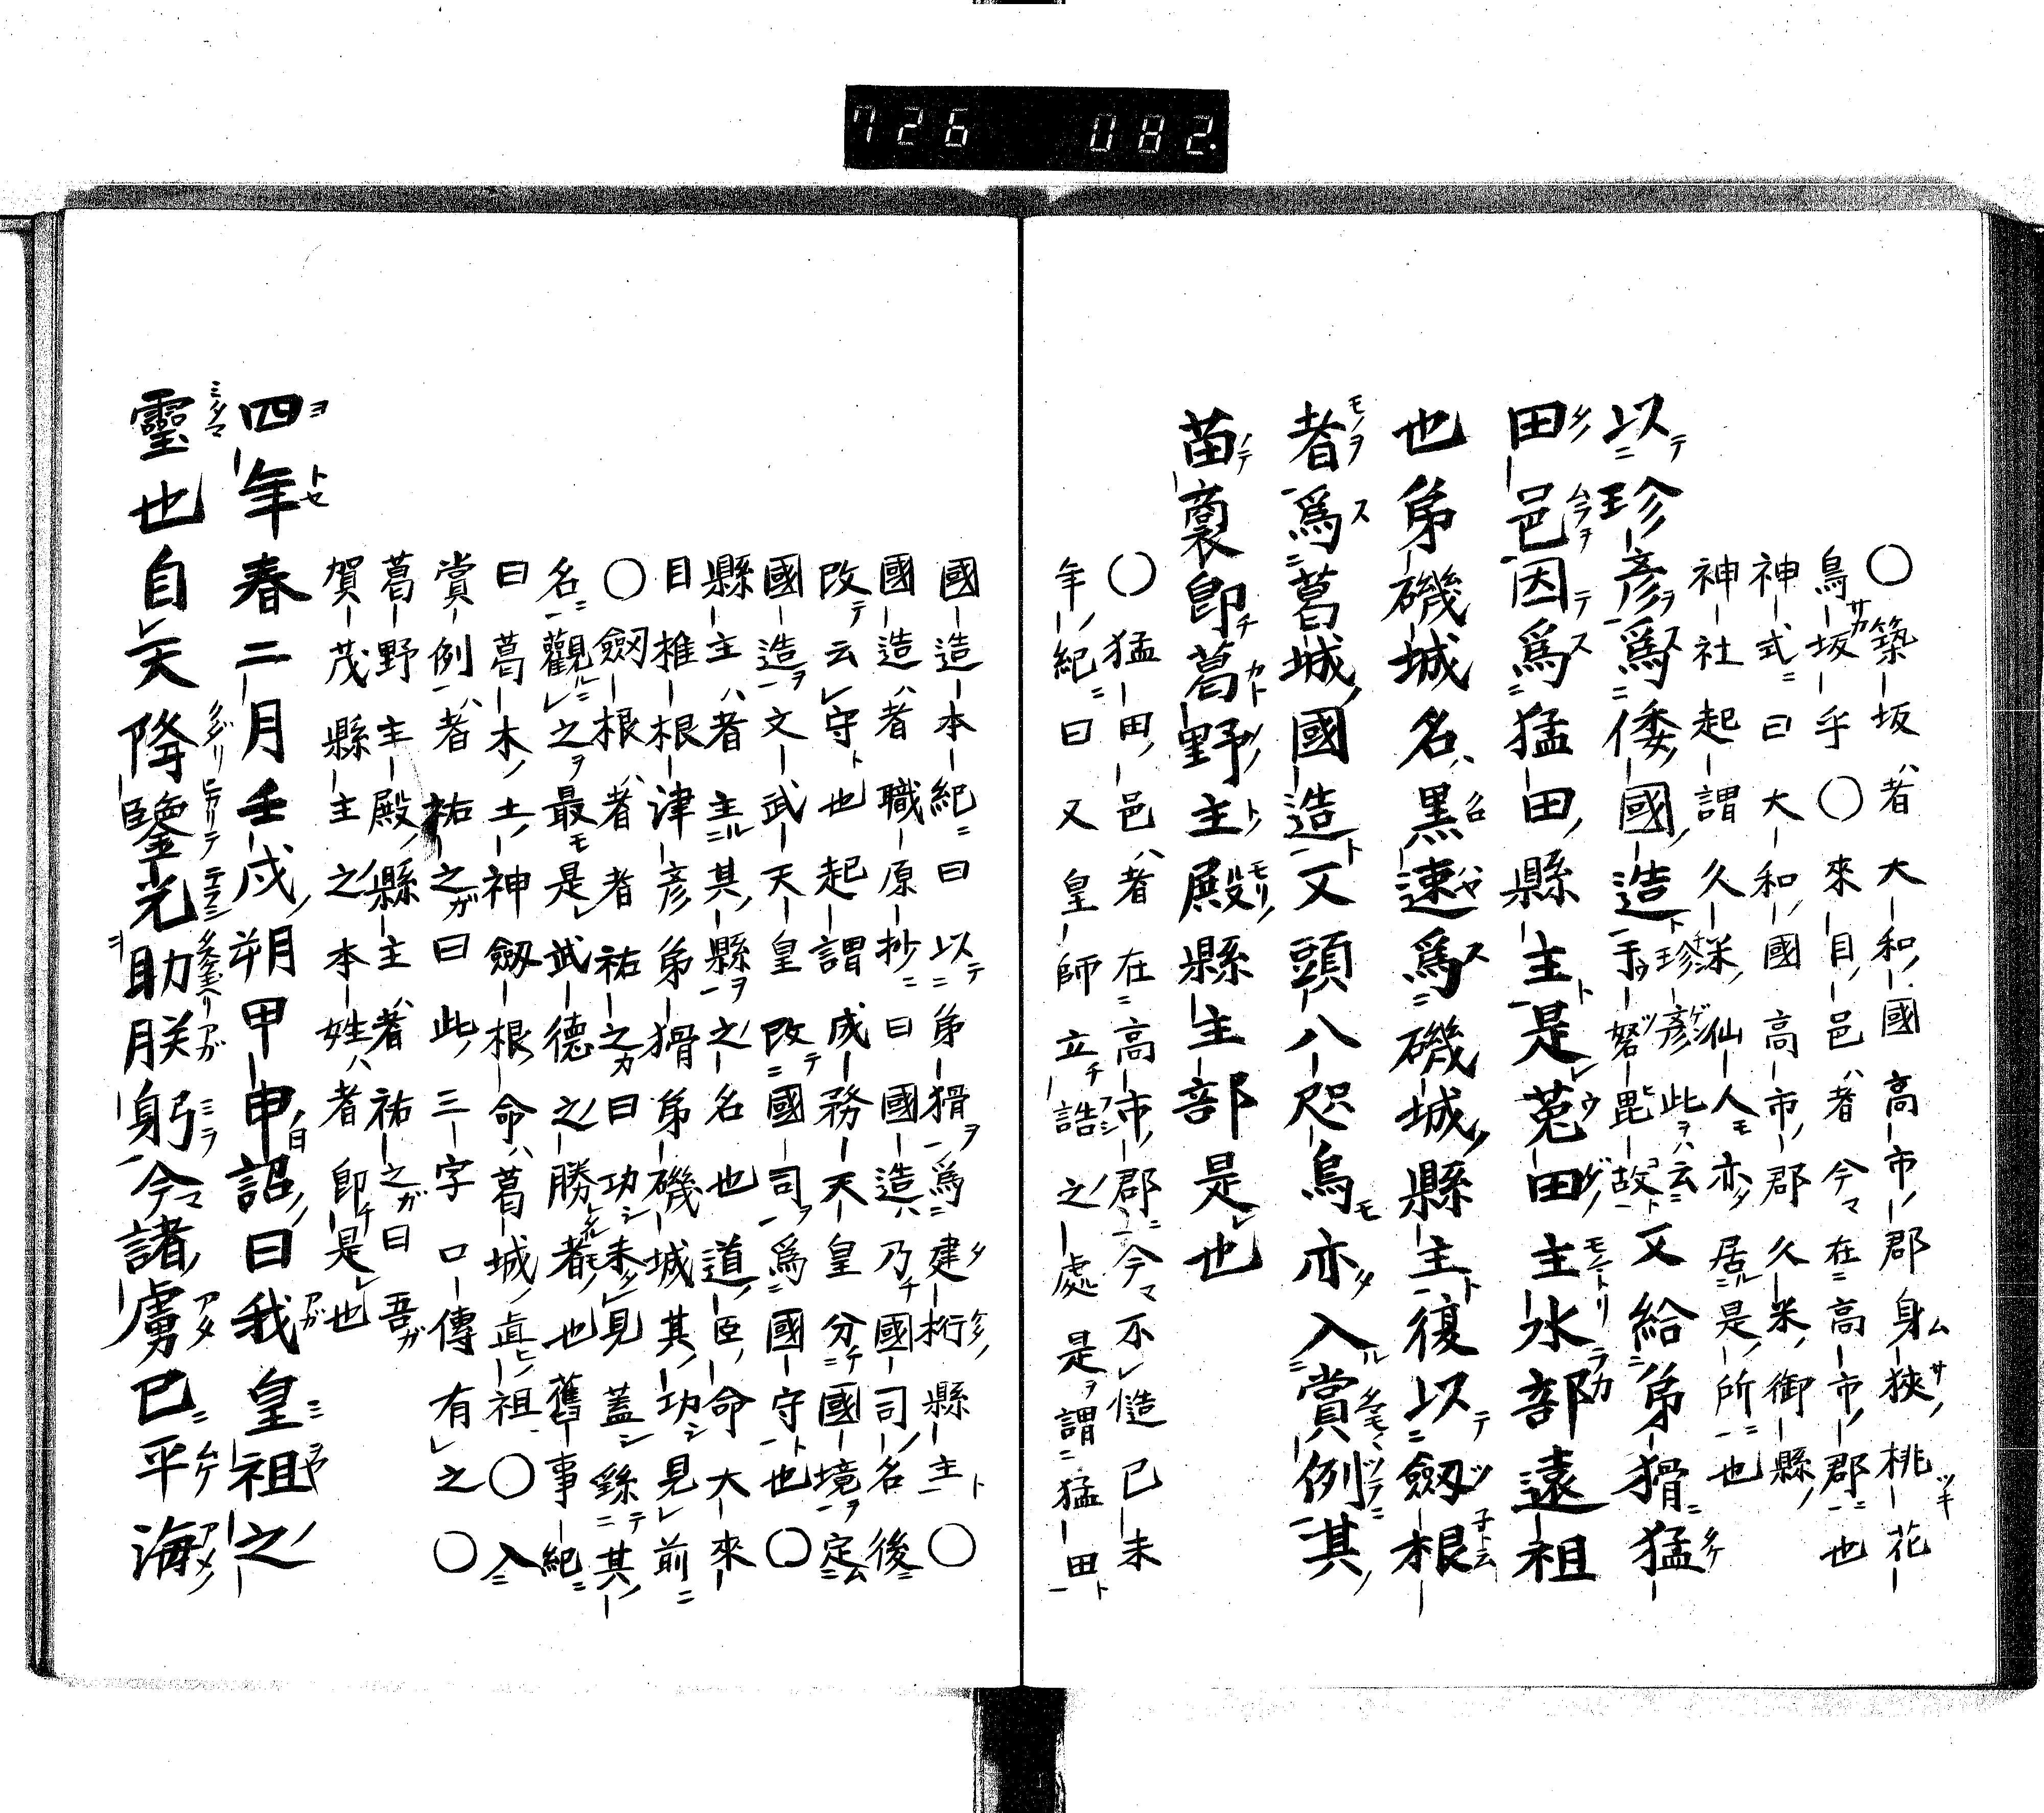 726 082.
〇築坂者大和國高市郡身狹桃花
鳥坂乎〇來目邑者今在高市郡也
神式曰大和國高市郡久米御縣
神社起謂久米仙人亦居是所也
以珍彥爲倭國造珍彥此云于砮毗故又給弟猾猛
田邑因爲猛田縣主是菟田主水部遠祖
也弟磯城名黑速爲磯城縣主復以劔根
者爲葛城國造又頭八咫烏亦入賞例其
苗裔卽葛野主殿縣主部是也
〇猛田邑者在高市郡今不慥已未
年紀曰又皇師立誥之處是謂猛田
國造本紀曰以弟猾爲建桁縣主〇
國造者職原抄曰國造乃國司名後
改云守也起謂成務天皇分國境定
國造文武天皇改國司爲國守也〇
縣主者主其縣之名也道臣命大來
目椎根津彥弟猾弟磯城其功見前
〇劔根者者祐之曰功未見蓋繇其
名觀之最是武德之勝者也舊事紀
曰葛木土神劔根命葛城直祖〇入
賞例者祐之曰此三字口傳有之〇
葛野主殿縣主者祐之曰吾
賀茂縣主之本姓者卽是也
四年春二月壬戌朔甲申詔曰我皇祖之
靈也自天降鑒光助朕躬今諸虜已平海